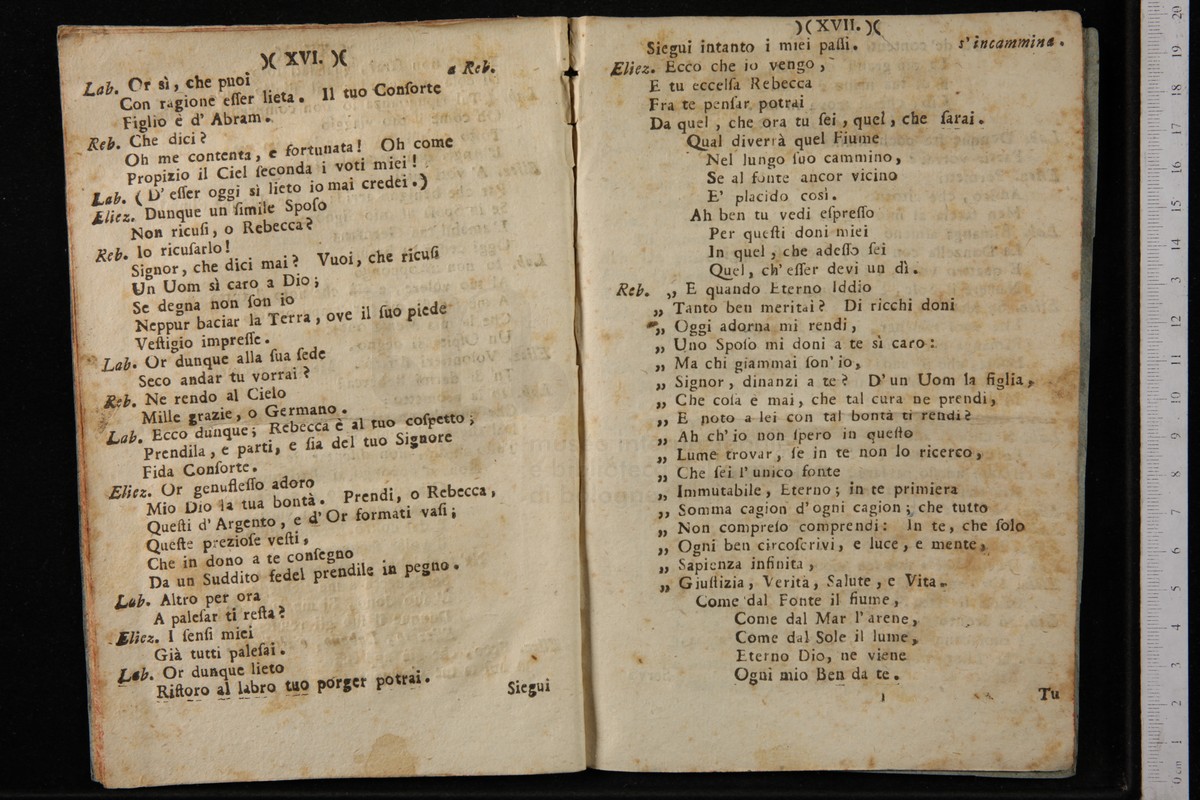 )( XVI. )(
Lab. Or sì, che puoi a Reb.
Con ragione eſſer lieta. Il tuo Conſorte
Figlio è d' Abram.
Reb. Che dici?
Oh me contenta, e fortunata! Oh come
Propizio il Ciel ſeconda i voti miei!
Lab. (D' eſſer oggi sì lieto io mai credei.)
Eliez. Dunque un ſimile Spoſo
Non ricuſi, o Rebecca?
Reb. Io ricuſarlo!
Signor, che dici mai? Vuoi, che ricuſi
Un Uom sì caro a Dio;
Se degna non ſon io
Neppur baciar la Terra, ove il ſuo piede
Veſtigio impreſſe.
Lab. Or dunque alla ſua ſede
Seco andar tu vorrai?
Reb. Ne rendo al Cielo
Mille grazie, o Germano.
Lab. Ecco dunque; Rebecca è al tuo coſpetto;
Prendila, e parti, e ſia del tuo Signore
Fida Conſorte.
Eliez. Or genufleſſo adoro
Mio Dio la tua bontà. Prendi, o Rebecca,
Queſti d' Argento, e d' Or formati vaſi;
Queſte prezioſe veſti,
Che in dono a te conſegno
Da un Suddito fedel prendile in pegno.
Lab. Altro per ora
A paleſar ti reſta?
Eliez. I ſenſi miei
Già tutti paleſai.
Lab. Or dunque lieto
Riſtoro al labro tuo porger potrai.
Siegui
)( XVII. )(
Siegui intanto i miei paſſi. s' incammina.
Eliez. Ecco che io vengo,
E tu eccelſa Rebecca
Fra te penſar potrai
Da quel, che ora tu ſei, quel, che ſarai.
Qual diverrà quel Fiume
Nel lungo ſuo cammino,
Se al fonte ancor vicino
E' placido così.
Ah ben tu vedi eſpreſſo
Per queſti doni miei
In quel, che adeſſo ſei
Quel, ch' eſſer devi un dì.
Reb. „ E quando Eterno Iddio
„ Tanto ben meritai? Di ricchi doni
„ Oggi adorna mi rendi,
„ Uno Spoſo mi doni a te sì caro:
„ Ma chi giammai ſon' io,
„ Signor, dinanzi a te? D' un Uom la figlia,
„ Che coſa è mai, che tal cura ne prendi,
„ E noto a lei con tal bontà ti rendi?
„ Ah ch' io non ſpero in queſto
„ Lume trovar, ſe in te non lo ricerco,
„ Che ſei l' unico fonte
„ Immutabile, Eterno; in te primiera
„ Somma cagion d' ogni cagion; che tutto
„ Non compreſo comprendi: In te, che ſolo
„ Ogni ben circoſcrivi, e luce, e mente,
„ Sapienza infinita,
„ Giuſtizia, Verità, Salute, e Vita.
Come dal Fonte il fiume,
Come dal Mar l' arene,
Come dal Sole il lume,
Eterno Dio, ne viene
Ogni mio Ben da te.
Tu